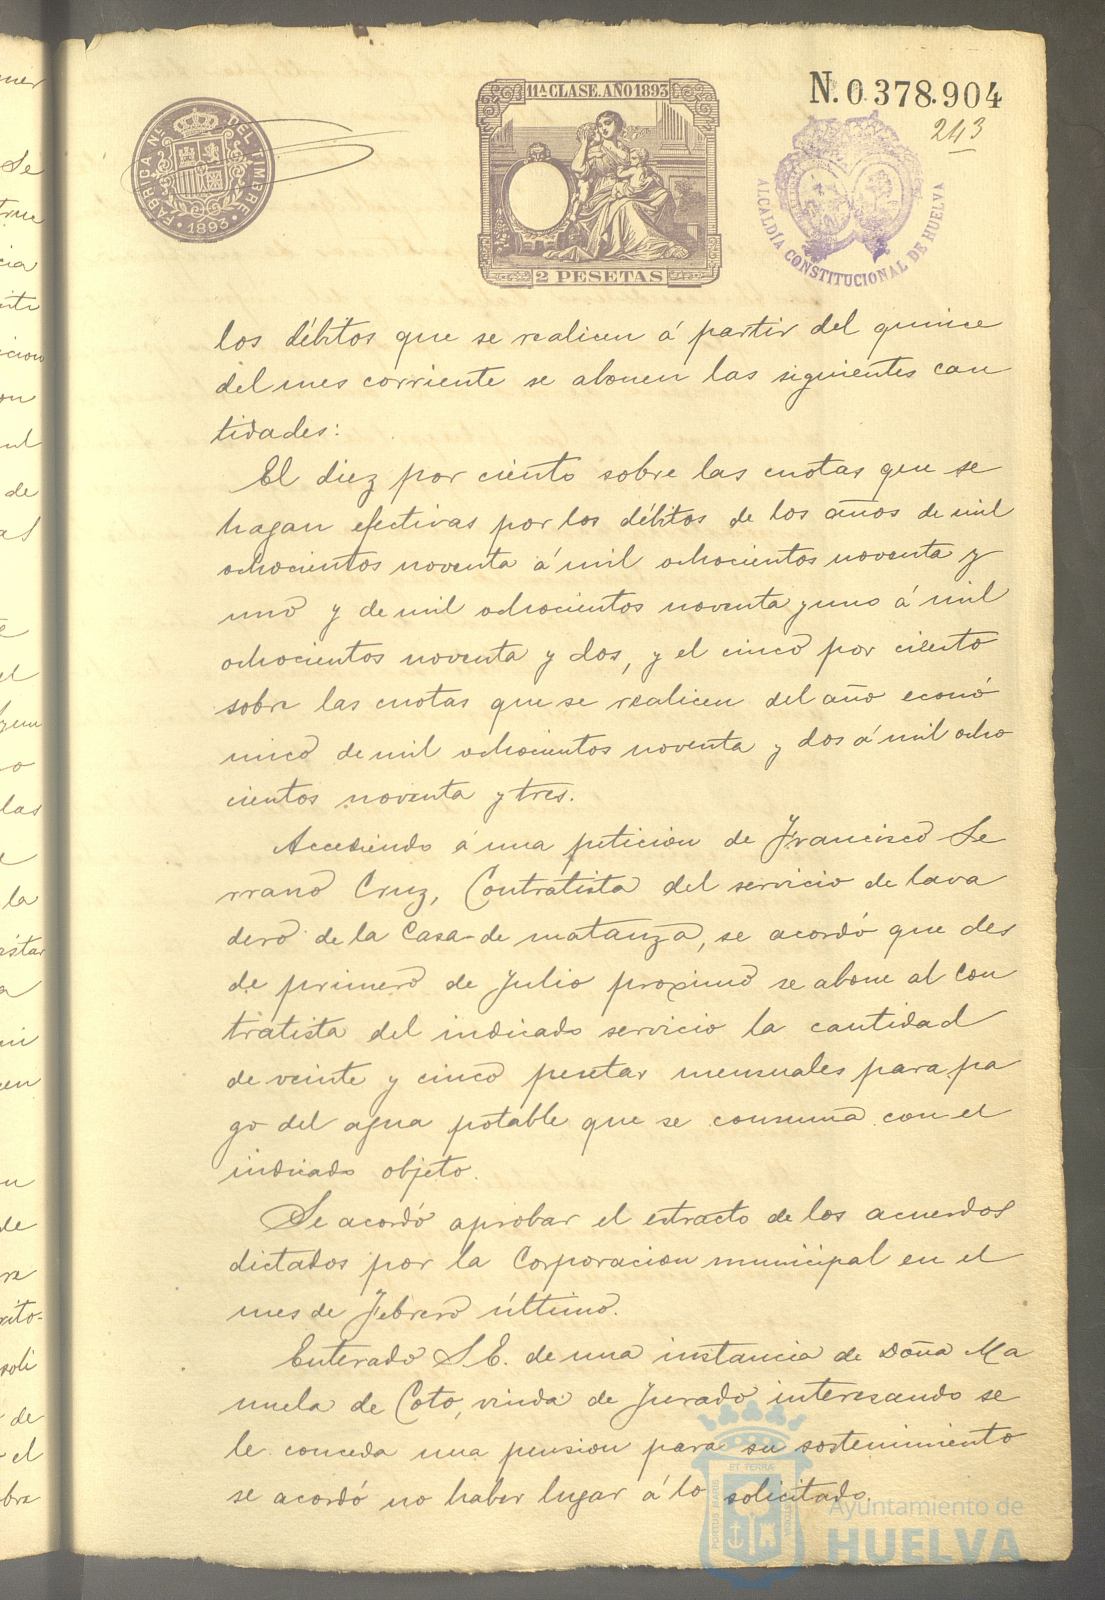 N. 0.378.904
243
11ª CLASE. AÑO 1893
2 PESETAS
FABRICA NL. DEL TIMBRE
1893
ALCALDÍA CONSTITUCIONAL DE HUELVA
los débitos que se realicen á partir del quince
del mes corriente se abonen las siguientes can
tidades:
El diez por ciento sobre las cuotas que se
hagan efectivas por los débitos de los años de mil
ochocientos noventa á mil ochocientos noventa y
uno y de mil ochocientos noventa y uno á mil
ochocientos noventa y dos, y el cinco por ciento
sobre las cuotas que se realicen del año econó
mico de mil ochocientos noventa y dos á mil ocho
cientos noventa y tres.
Accediendo á una peticion de Francisco Se
rrano Cruz, Contratista del servicio de lava
dero de la Casa-de matanza, se acordó que des
de primero de Julio proximo se abone al con
tratista del indicado servicio la cantidad
de veinte y cinco pesetas mensuales para pa
go del agua potable que se consuma con el
indicado objeto.
Se acordó aprobar el estracto de los acuerdos
dictados por la Corporacion municipal en el
mes de Febrero último.
Enterado S.E. de una instancia de Doña Ma
nuela de Coto, viuda de Jurado interesando se
le conceda una pension para su sostenimiento
se acordó no haber lugar á lo solicitado.
Ayuntamiento de
HUELVA